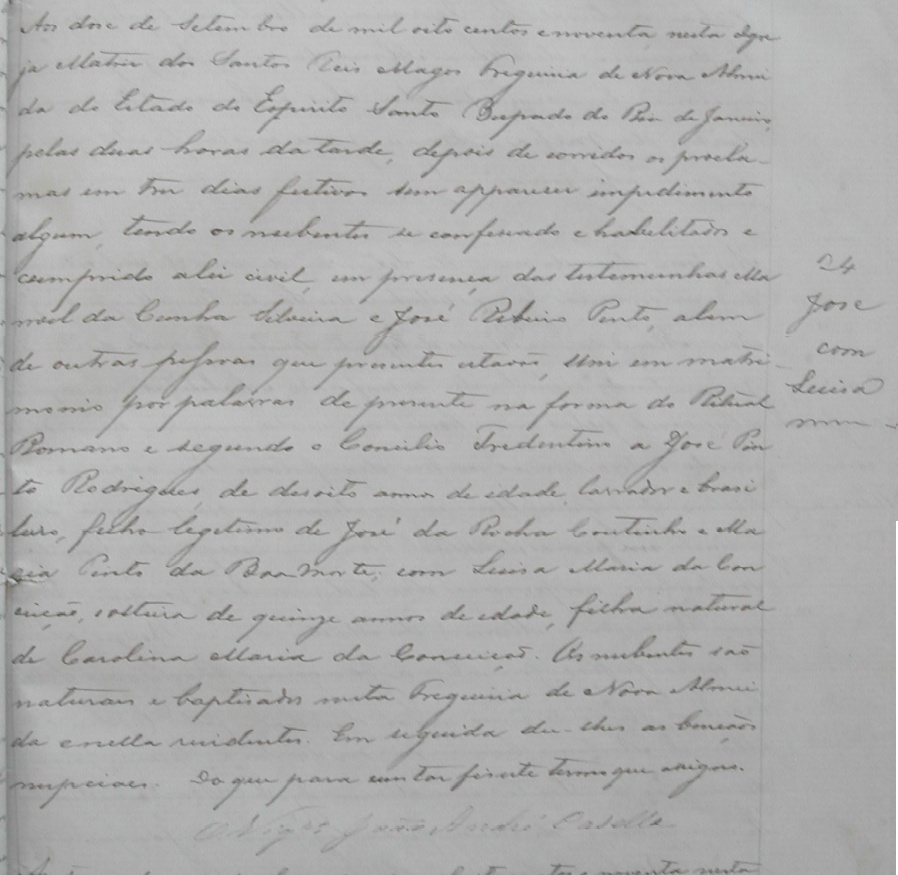 Aos dose de Setembro de mil oito centos e noventa nesta Igre
ja Matriz dos Santos Reis Magos Freguisia de Nova Almei
da do Estado do Espirito Santo Bispado do Rio de Janeiro,
pelas duas horas da tarde, depois de corridos os procla-
mas em tres dias festivos sem apparecer impedimento
algum, tendo os nubentes se confessado e habilitados e
cumprido a lei civil, em presença das testemunhas Ma
noel da Cunha Silveira e José Ribeiro Pinto, alem
de outras pessoas que presentes estavão, uni em matri-
monio por palavras de presente na forma do Ritual
Romano e segundo o Concilio Tredentino a José Pin
to Rodrigues, de desoito annos de idade, lavrador e brasi
leiro, filho legitimo de José da Rocha Coutinho e Ma
ria Pinto da Boa Morte, com Luisa Maria da Con
ceição, solteira de quinze annos de edade, filha natural
de Carolina Maria da Conceição. Os nubentes são
naturais e baptisados nesta Freguisia de Nova Almei
da e nella residentes. Em seguida dei-lhes as bençãos
nupciaes. Do que para constar fis este termo que assigno.
João André Casella
24
José
com
Luisa
noventa nesta